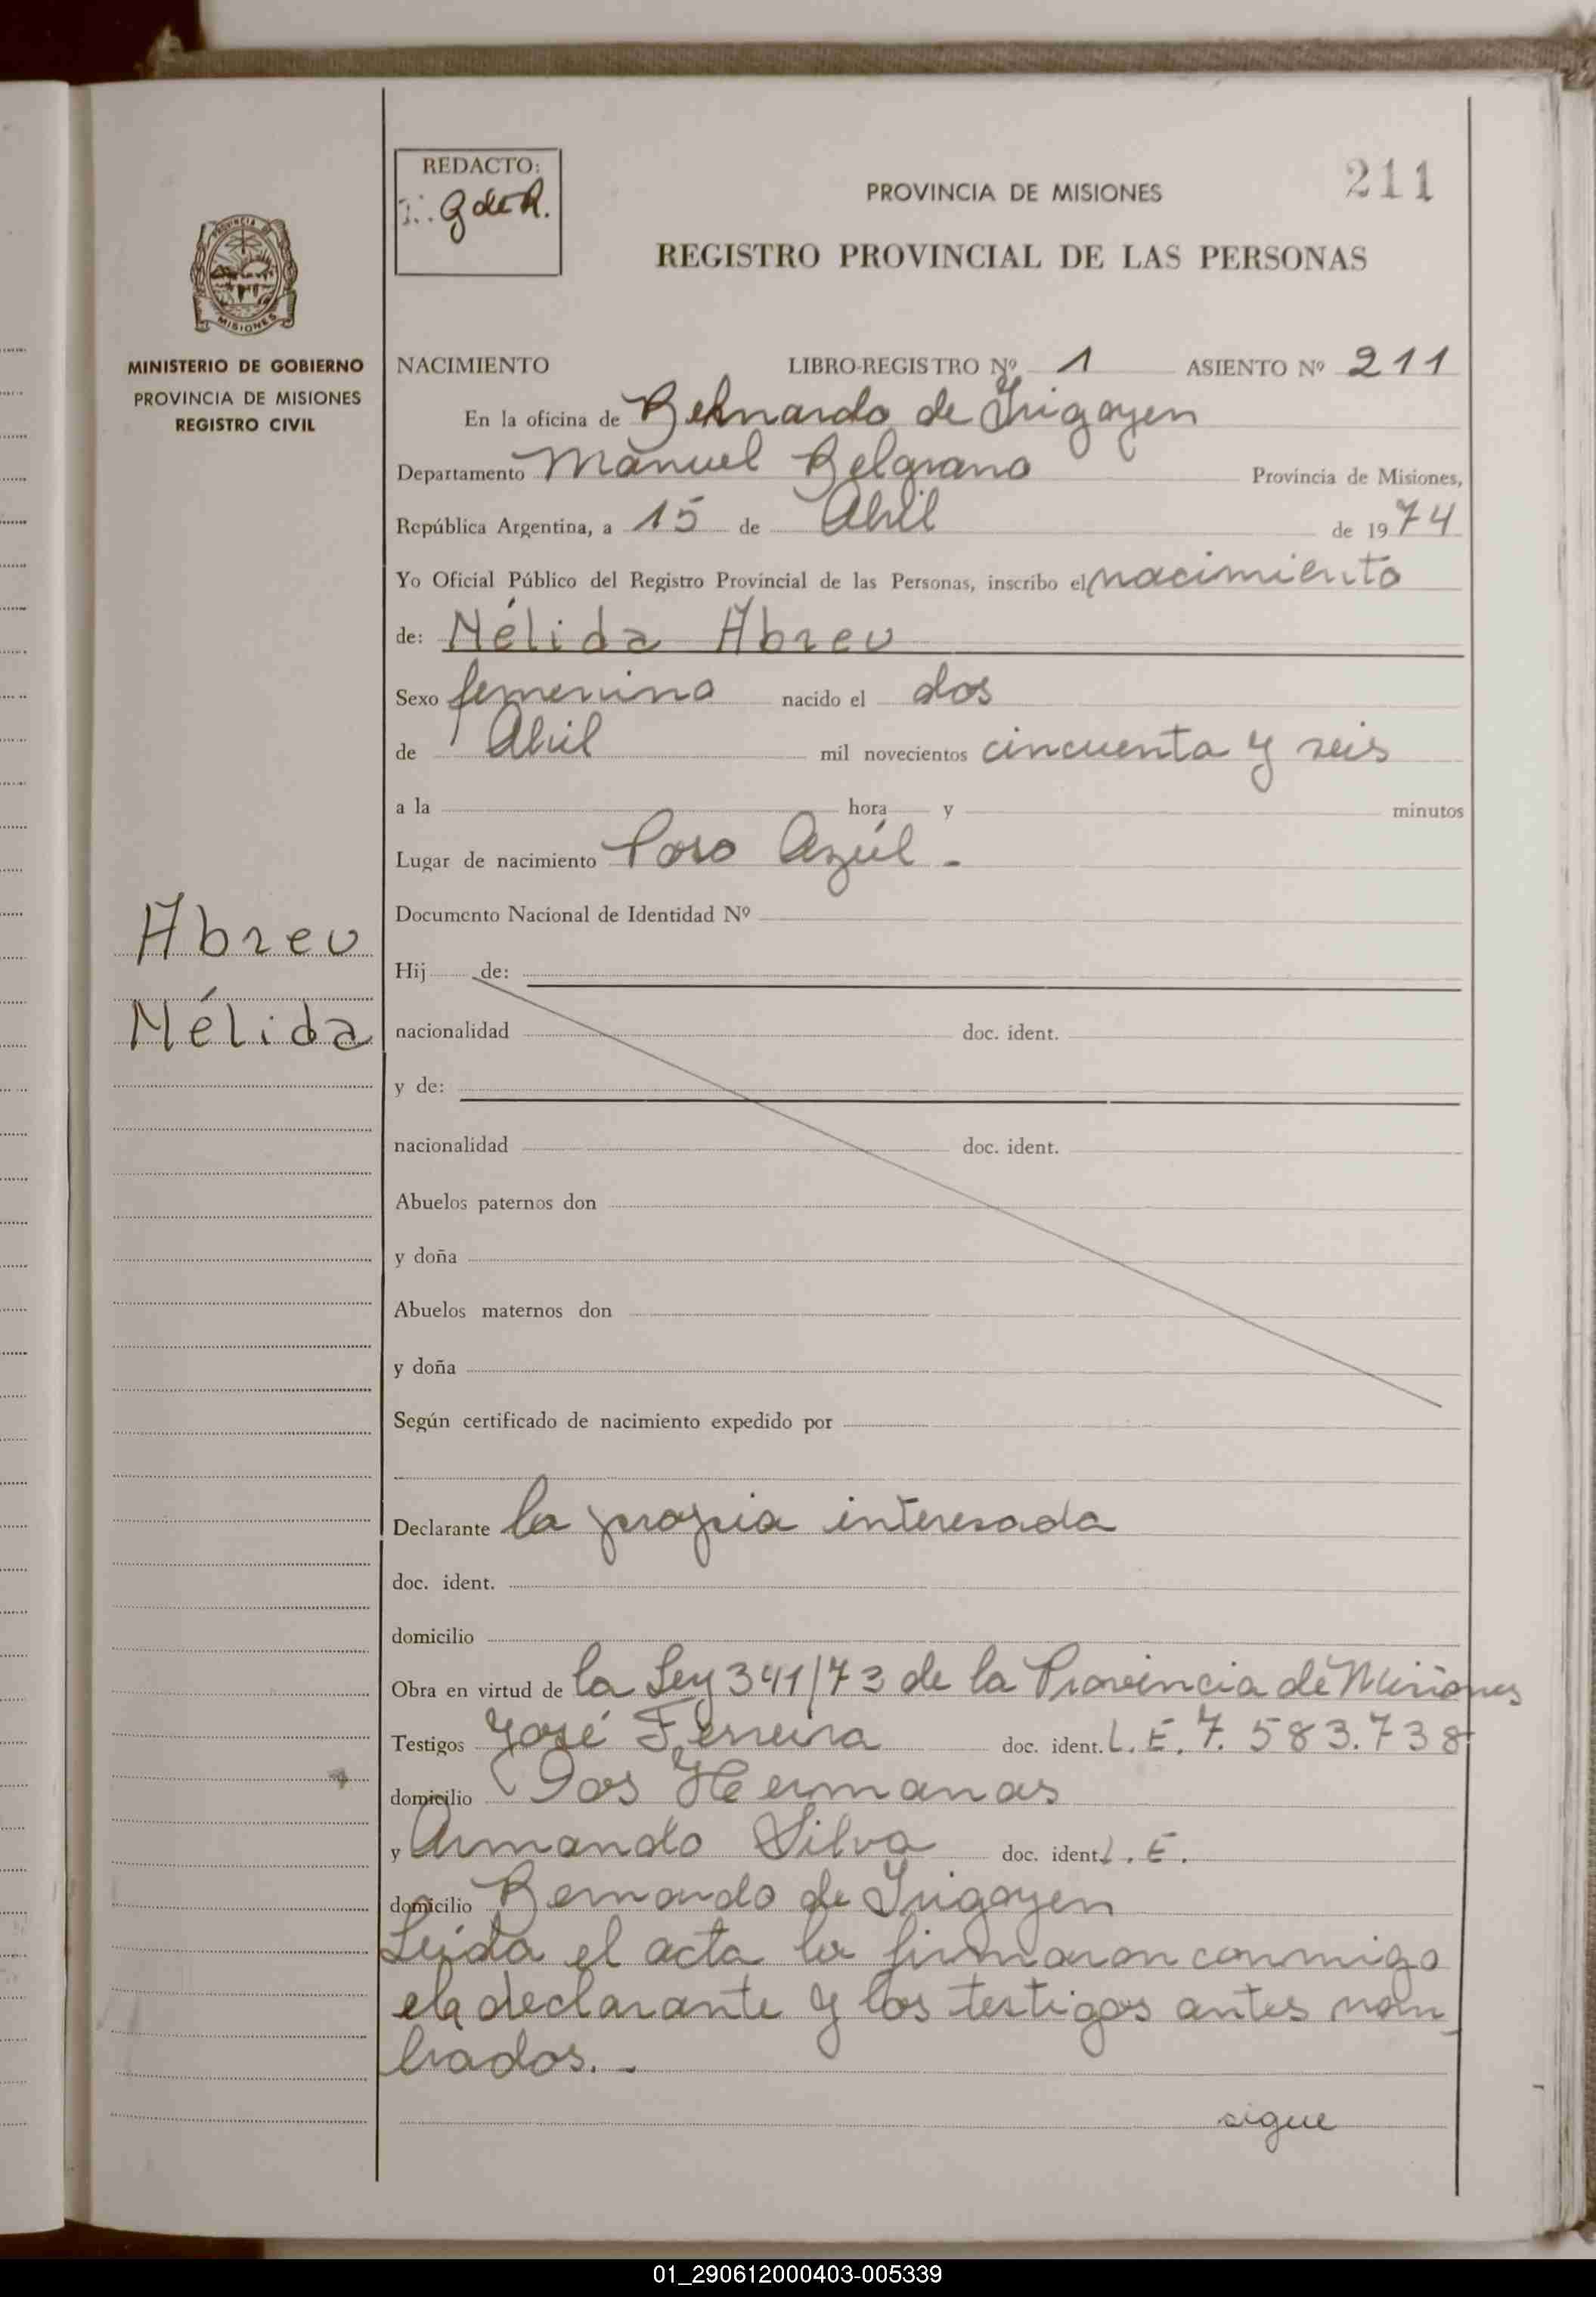 REDACTO:
G de R.
PROVINCIA DE MISIONES
211
REGISTRO PROVINCIAL DE LAS PERSONAS
PROVINCIA DE
MISIONES
MINISTERIO DE GOBIERNO
PROVINCIA DE MISIONES
REGISTRO CIVIL
NACIMIENTO LIBRO-REGISTRO Nº 1 ASIENTO Nº 211
En la oficina de Bernardo de Irigoyen
Departamento Manuel Belgrano Provincia de Misiones,
República Argentina, a 15 de Abril de 1974
Yo Oficial Público del Registro Provincial de las Personas, inscribo el nacimiento
de: Nélida Abreu
Sexo femenino nacido el dos
de Abril mil novecientos cincuenta y seis
a la hora y minutos
Lugar de nacimiento Poso Azúl -
Documento Nacional de Identidad Nº
Abreu
Hij de:
Nélida
nacionalidad doc. ident.
y de:
nacionalidad doc. ident.
Abuelos paternos don
y doña
Abuelos maternos don
y doña
Según certificado de nacimiento expedido por
Declarante la propia interesada
doc. ident.
domicilio
Obra en virtud de la Ley 341/73 de la Provincia de Misiones
Testigos José Ferreira doc. ident. L.E. 7.583.738
domicilio Dos Hermanas
y Armando Silva doc. ident. L.E.
domicilio Bernardo de Irigoyen
Leída el acta la firmaron conmigo
la declarante y los testigos antes nom
brados. -
sigue
01_290612000403-005339